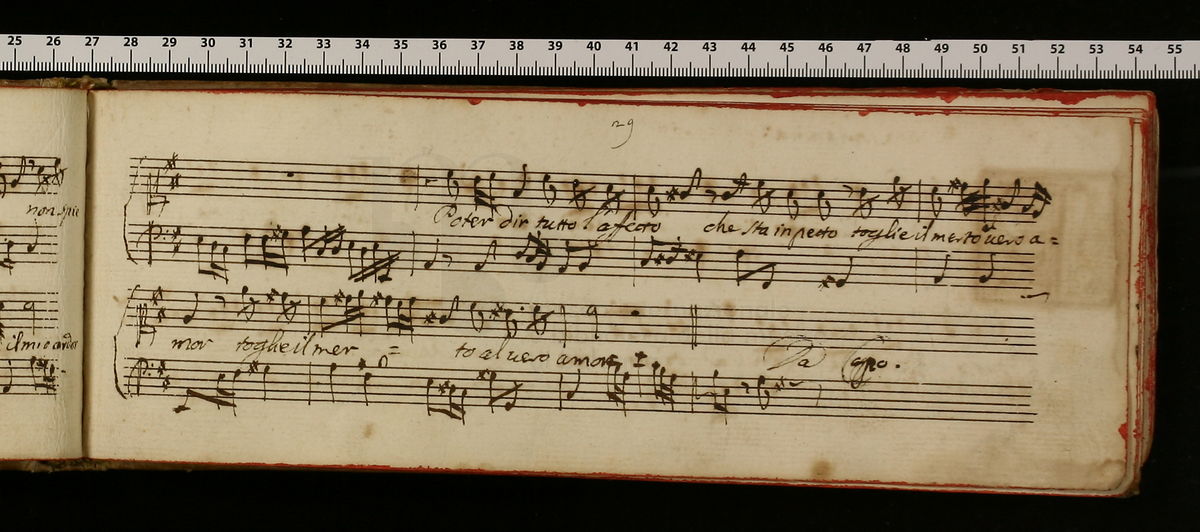 25 26 27 28 29 30 31 32 33 34 35 36 37 38 39 40 41 42 43 44 45 46 47 48 49 50 51 52 53 54 55
29
non
Poter dir tutto l'affetto che sta in petto toglie il merto al vero a=
il mio
mor toglie il mer = to al vero amor
Da Capo.